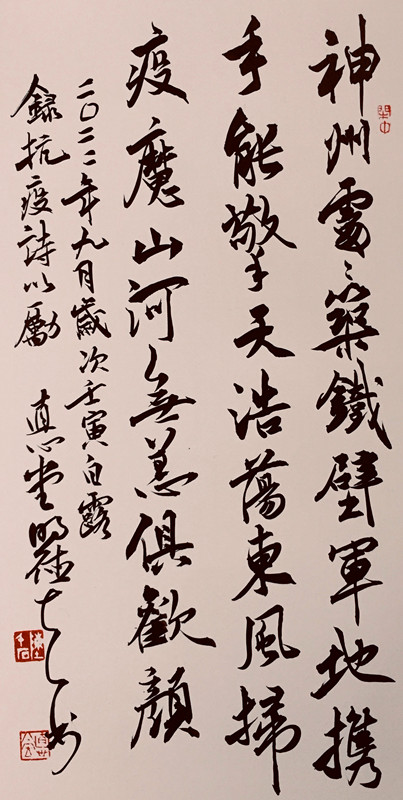 神州處〻築鐵壁軍地携
手能擎天浩蕩東風掃
疫魔山河無恙俱歡顏
二〇二二年九月歲次壬寅白露
錄抗疫詩以勵 直心堂